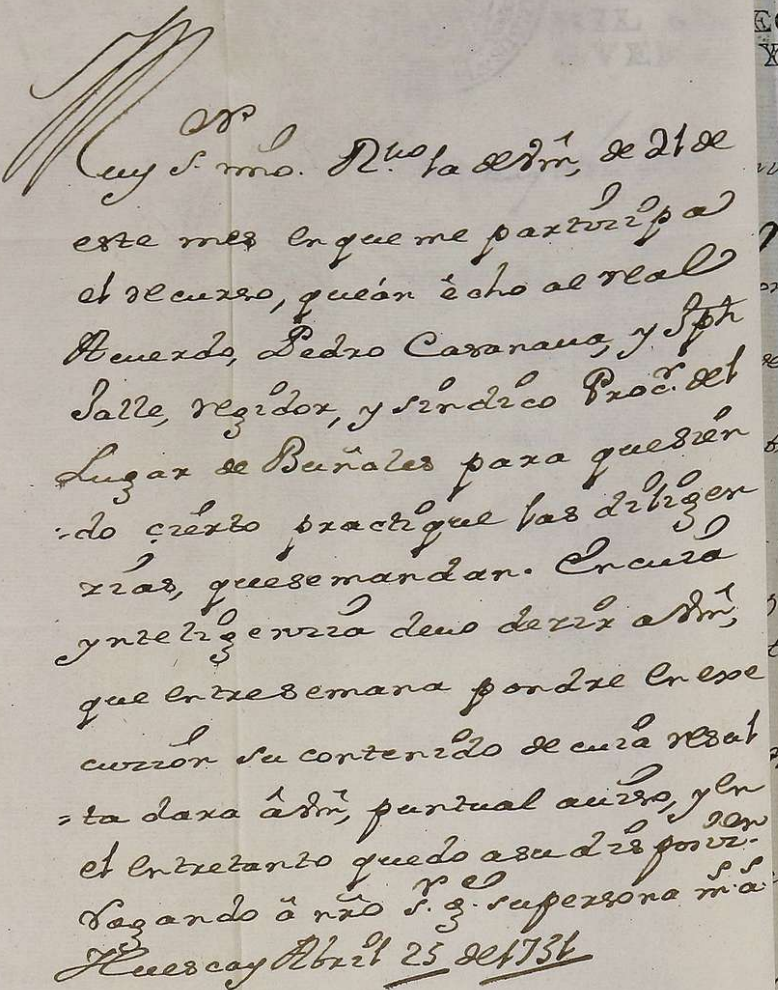 Muy S.r mio. R.uo la de Vm, de 21 de
este mes en que me partizipa
el recurso, que án écho al real
Acuerdo, Pedro Casanaua, y Jph
Salle, regidor, y sindico Proc.r del
Lugar de Bañales para que sien
-do çierto practique las diligen
zias, que se mandan. En cuia
ynteligenzia deuo dezir a Vm,
que entre semana pondre en exe
cuzión su contenido de cuia resul
-ta dara â Vm, puntual auiso, y en
el entretanto quedo a su disposizi.on
Rogando â nro S.r g.e su persona m.s a.s
Huesca y Abril 25 de 1731